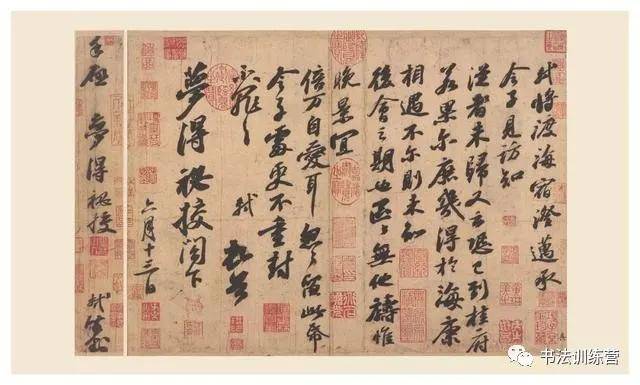 軾將渡海宿澄邁承
令子見訪知
從者未歸又云恐已到桂府
若果尔庶幾得於海康
相遇不尔則未知
後會之期也區々無他禱惟
晚景宜
倍万自愛耳忽々留此帋
令子處更不重封
不罪々
軾 頓首
夢得秘校閣下
六月十三日
手啓 夢得秘校 軾封
书法训练营